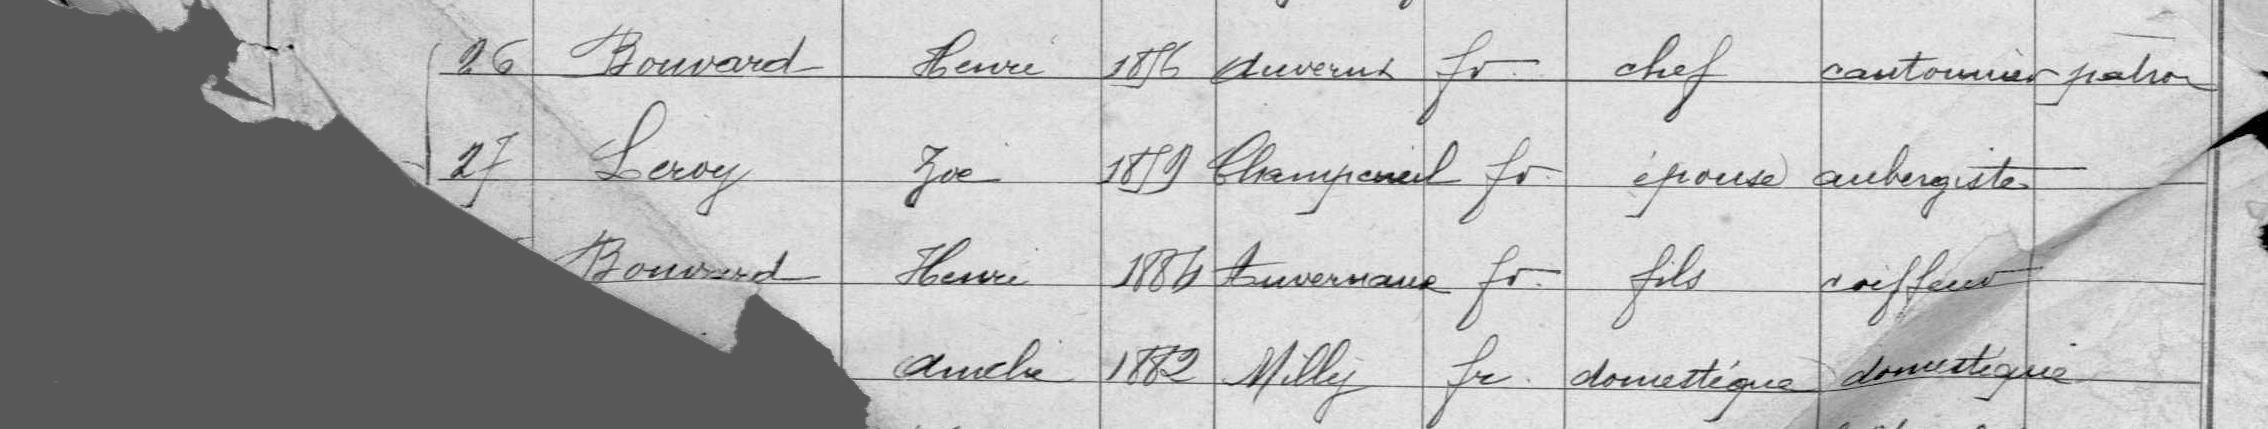 26 Bouvard Henri 1856 Auvernx fr. chef cantonnier patron
27 Leroy Zoé 1859 Champcueil fr. épouse aubergiste
Bouvard Henri 1884 Auvernaux fr. fils coiffeur
Amélie 1882 Milly fr. domestique domestique